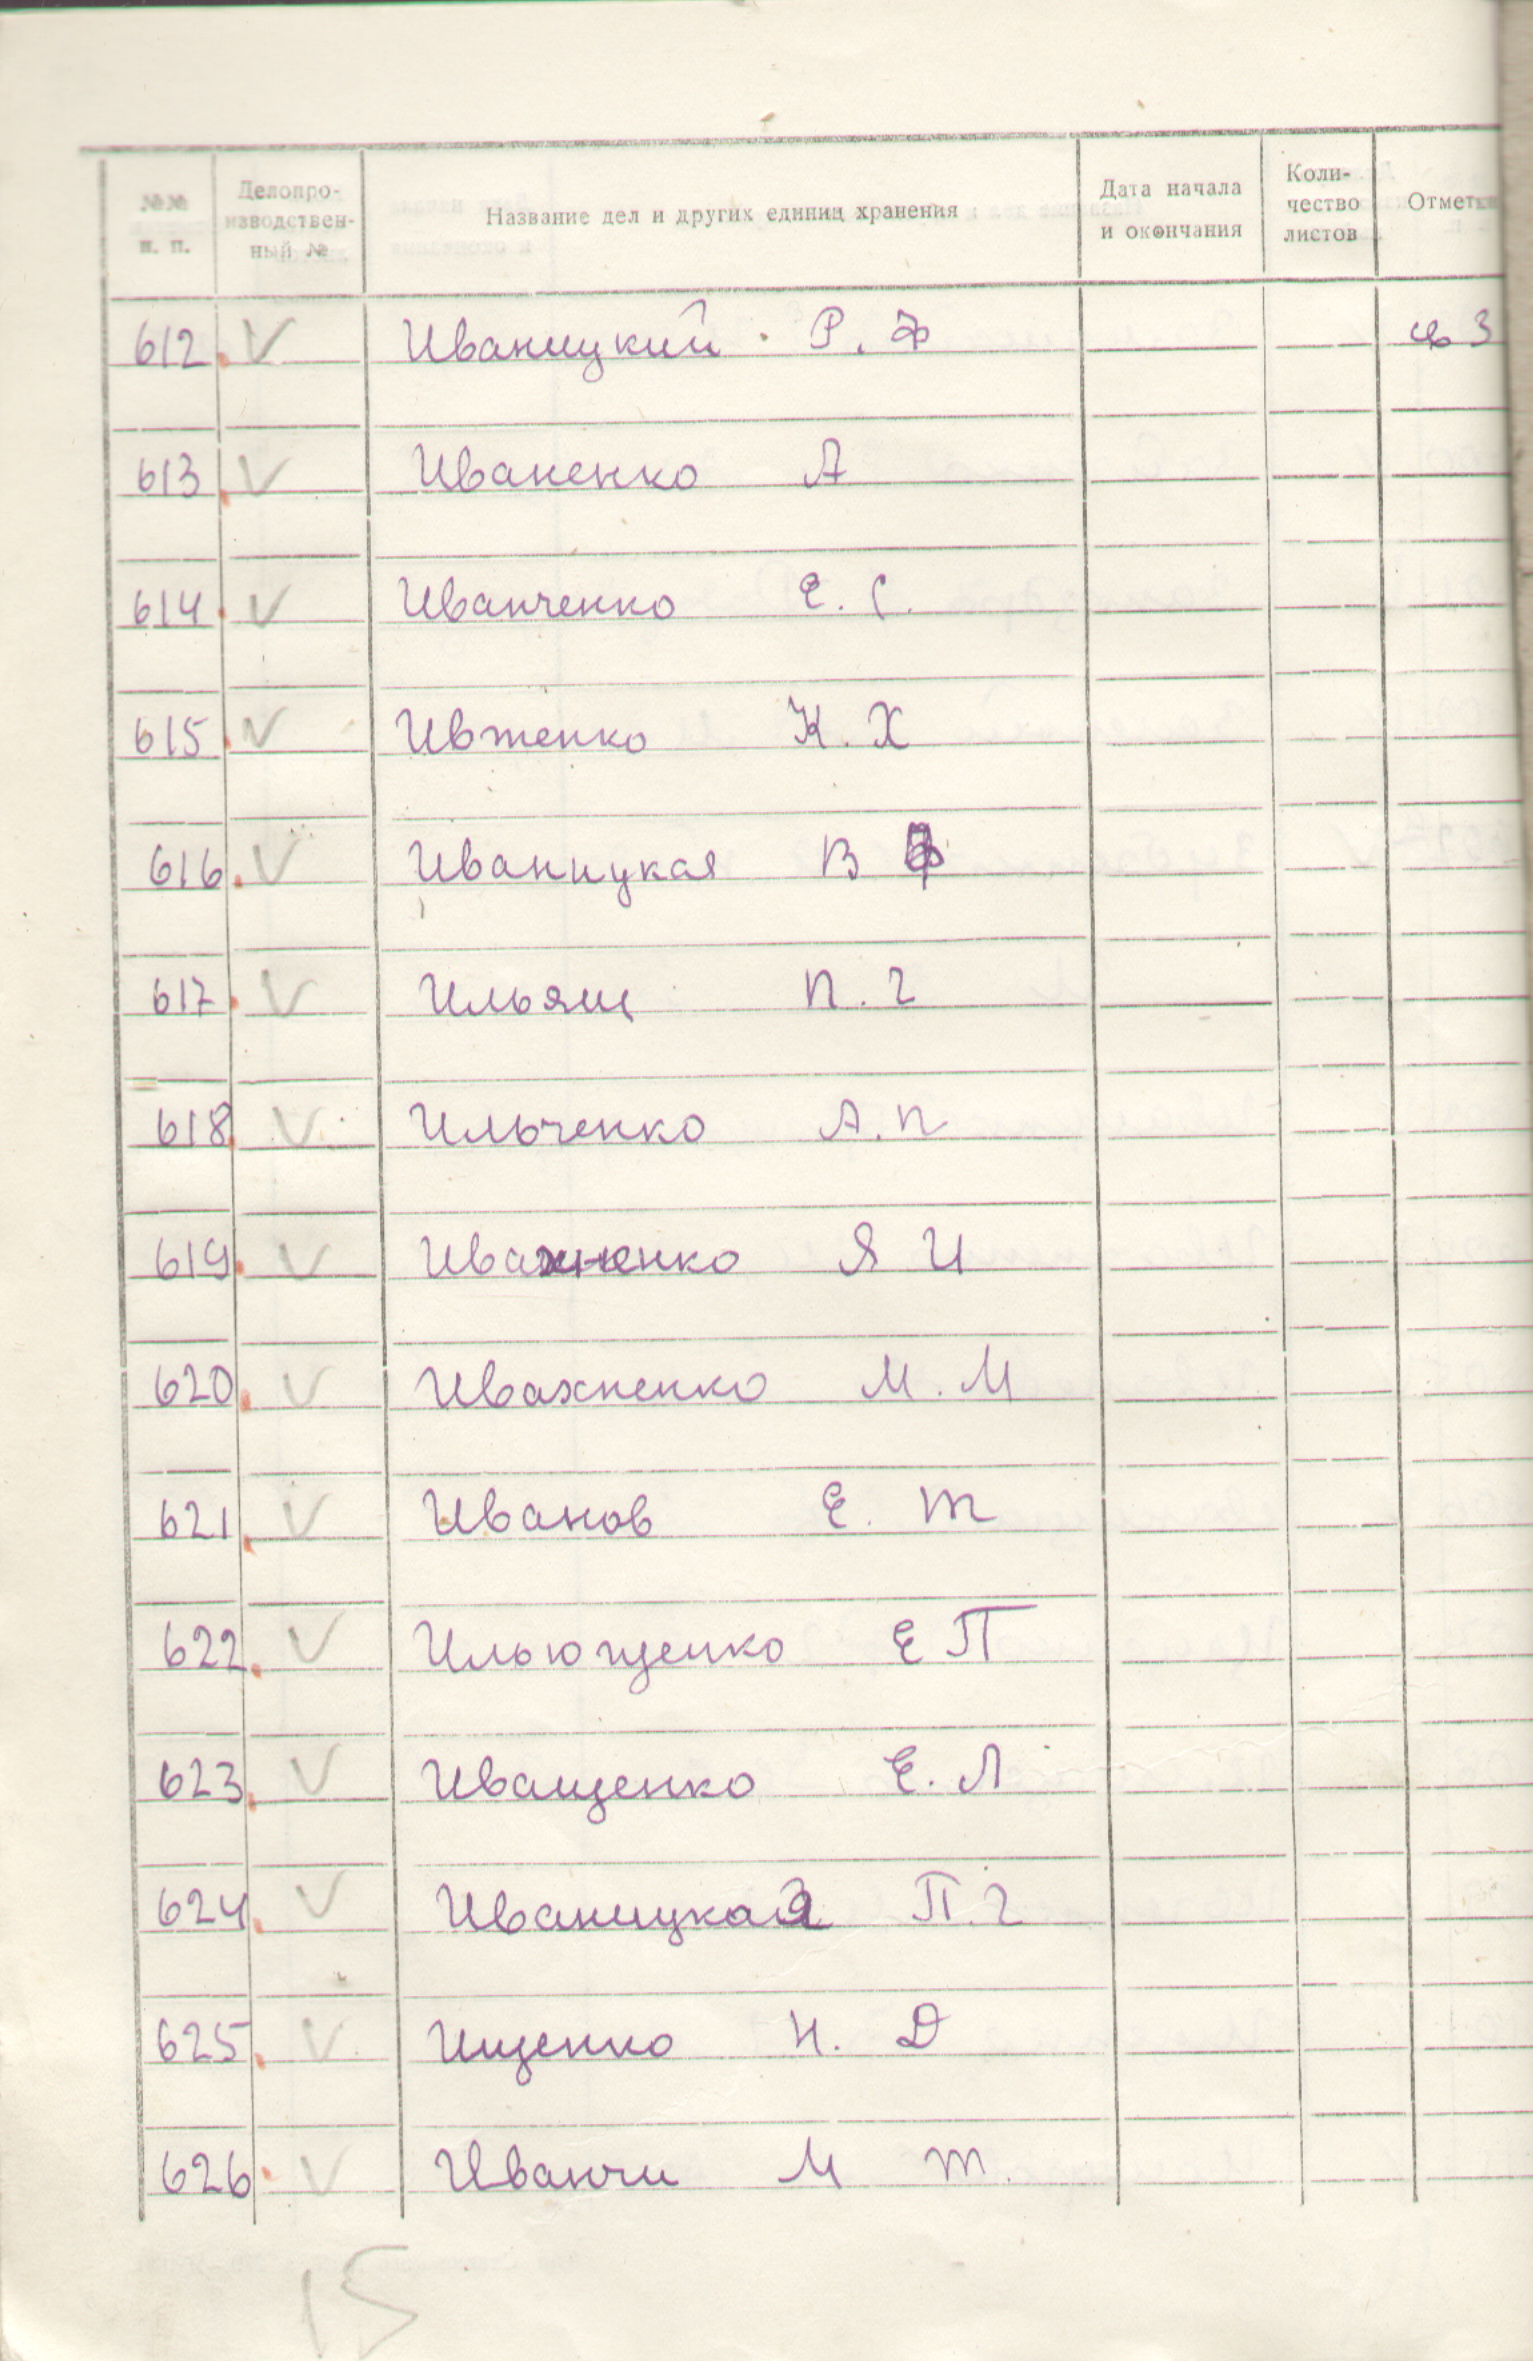 №№ п. п. Делопроизводственный № Название дел и других единиц хранения Дата начала и окончания Количество листов Отметки
612 V Иваницкий Р. Ф
613 V Иваненко А
614 V Иванченко Е. С.
615 V Ивженко К. Х
616 V Иваницкая В Ф
617 V Ильящ П. Г
618 V Ильченко А. П
619 V Ивахненко Я И
620 V Ивахненко М. М
621 V Иванов Е. Т
622 V Ильющенко Е П
623 V Иващенко Е. Л
624 V Иваницкая П. Г
625 V Ищенко Н. Д
626 V Иванчи М Т.
15